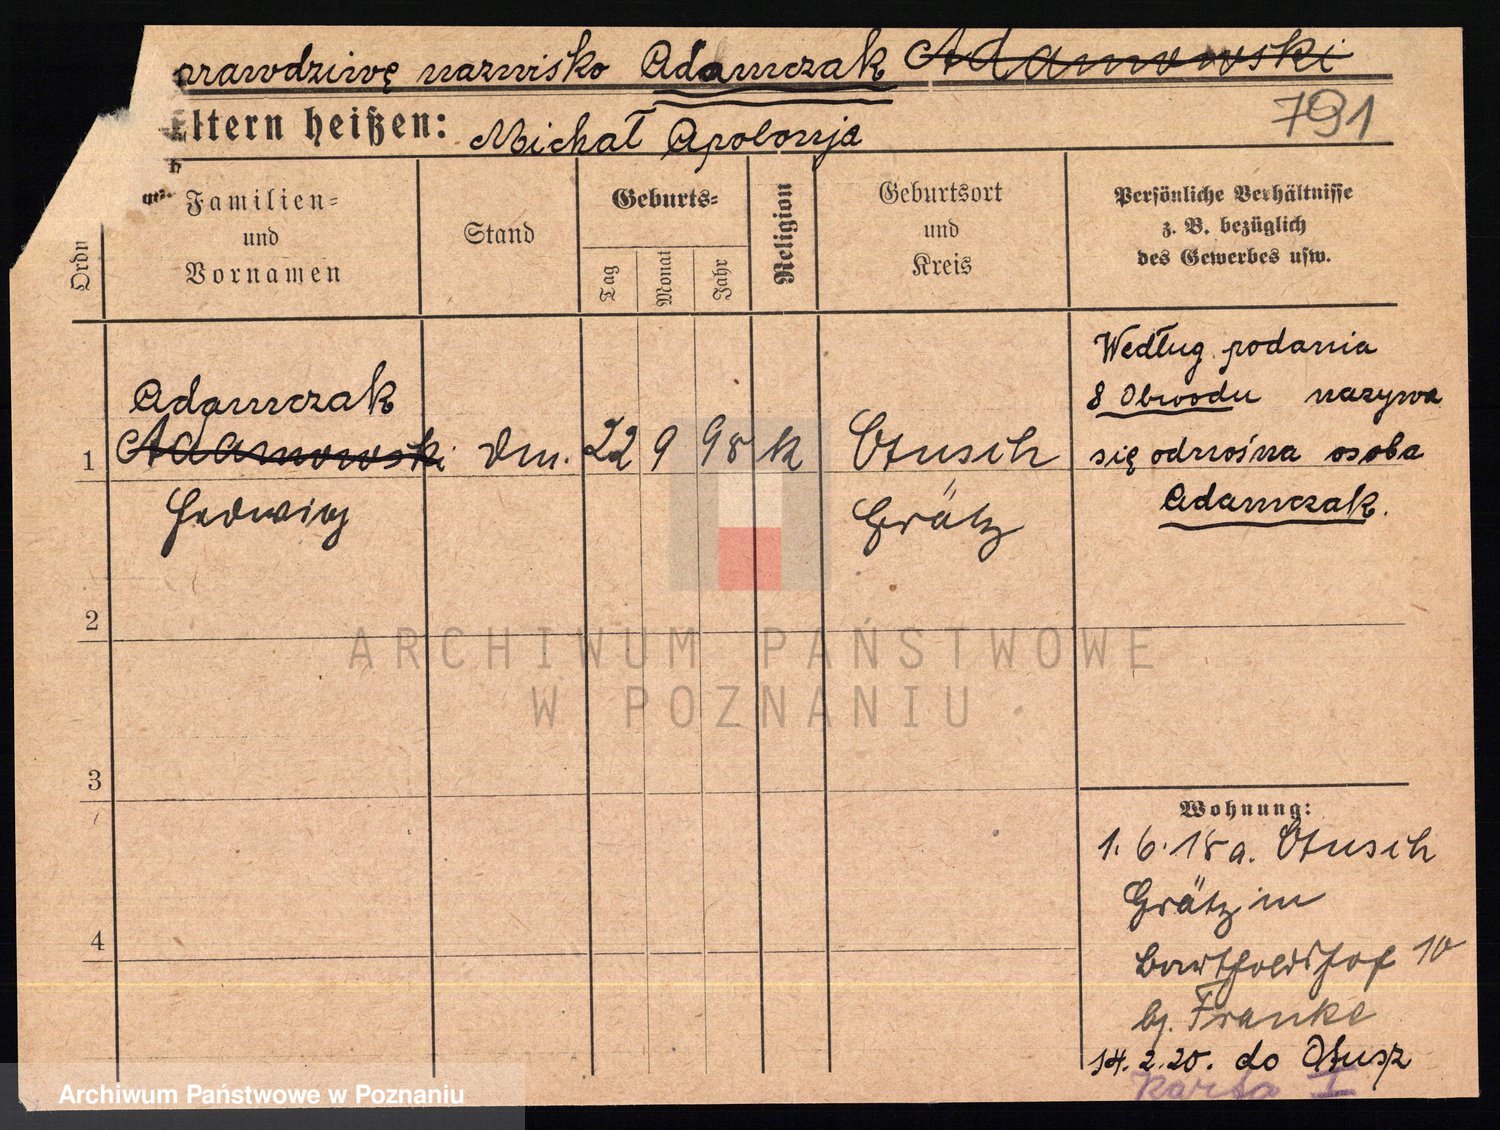 prawdziwe nazwisko Adamczak Adamowski
Eltern heißen: Michał Apolonja
791
Ordn
Familien=
und
Vornamen
Stand
Geburts=
Tag
Monat
Jahr
Religion
Geburtsort
und
Kreis
Persönliche Verhältnisse
z. B. bezüglich
des Gewerbes usw.
Adamczak
1 Adamowski Dm. 22 9 98 k Otusch
Hedwig Grätz
Według podania
8 Obwodu nazywa
się odnośna osoba
Adamczak.
2
3
4
Wohnung:
1. 6. 18 a. Otusch
Grätz in
Bartholdshof 10
bj. Franke
14. 2. 20. do Otusz
Karta I
ARCHIWUM PAŃSTWOWE
W POZNANIU
Archiwum Państwowe w Poznaniu